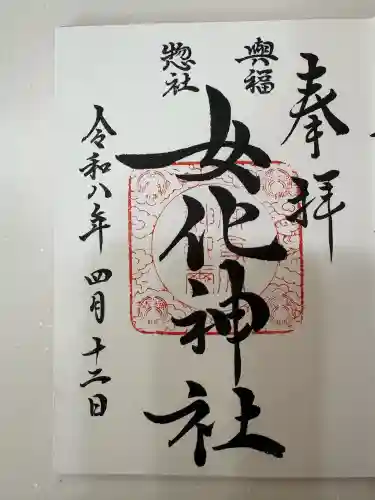 奉拝
興福
女化神社
惣社
令和八年 四月 十二日